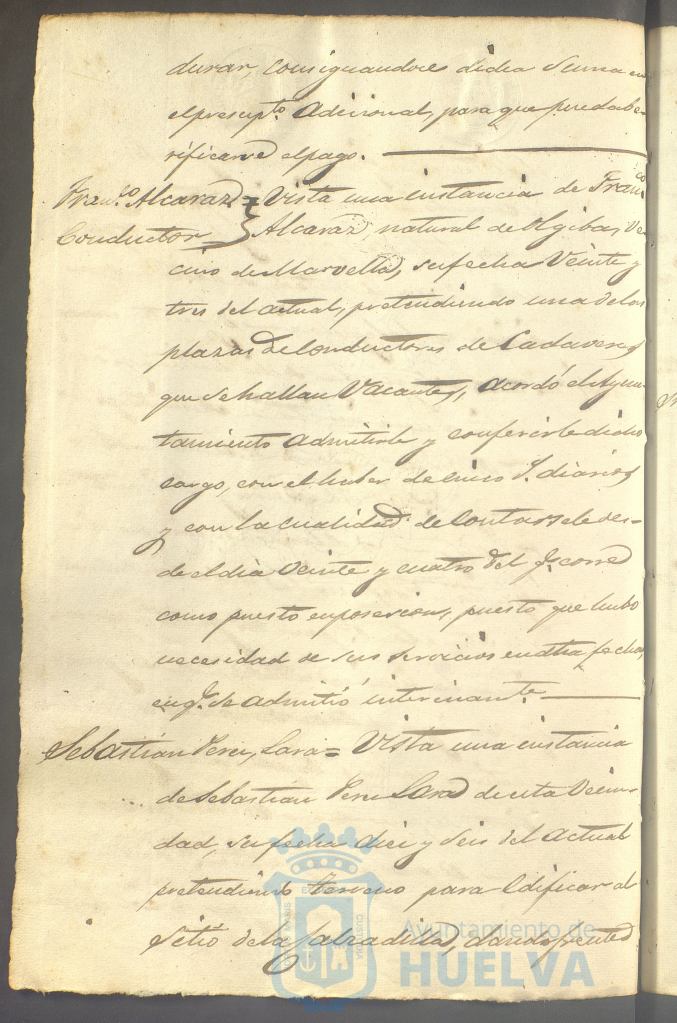 durar, consignandose dicha suma en
el presupto. adicional, para que pueda be-
rificarse el pago.
Franco. Alcaraz = Vista una instancia de Franco
Conductor } Alcaraz, natural de Ogibar, Ve-
cino de Marvella, su fecha Veinte y
tres del actual, pretendiendo una de las
plazas de Conductores de Cadaveres
que se hallan Vacantes, acordó el Ayun-
tamiento admitirle y conferirle dicho
cargo, con el haber de cinco r. diarios
y con la cualidad de Contarsele des-
de el dia Veinte y cuatro del q. corre
como puesto en posesion, puesto que hubo
necesidad de sus servicios en dha fecha,
en q. se admitió interinante.
Sebastian Perez, Lara = Vista una instancia
de Sebastian Perez Lara de esta Vecin-
dad, su fecha diez y seis del actual
pretendiendo terreno para Edificar al
Sitio de la Calzadilla, dando frente
Ayuntamiento de
HUELVA